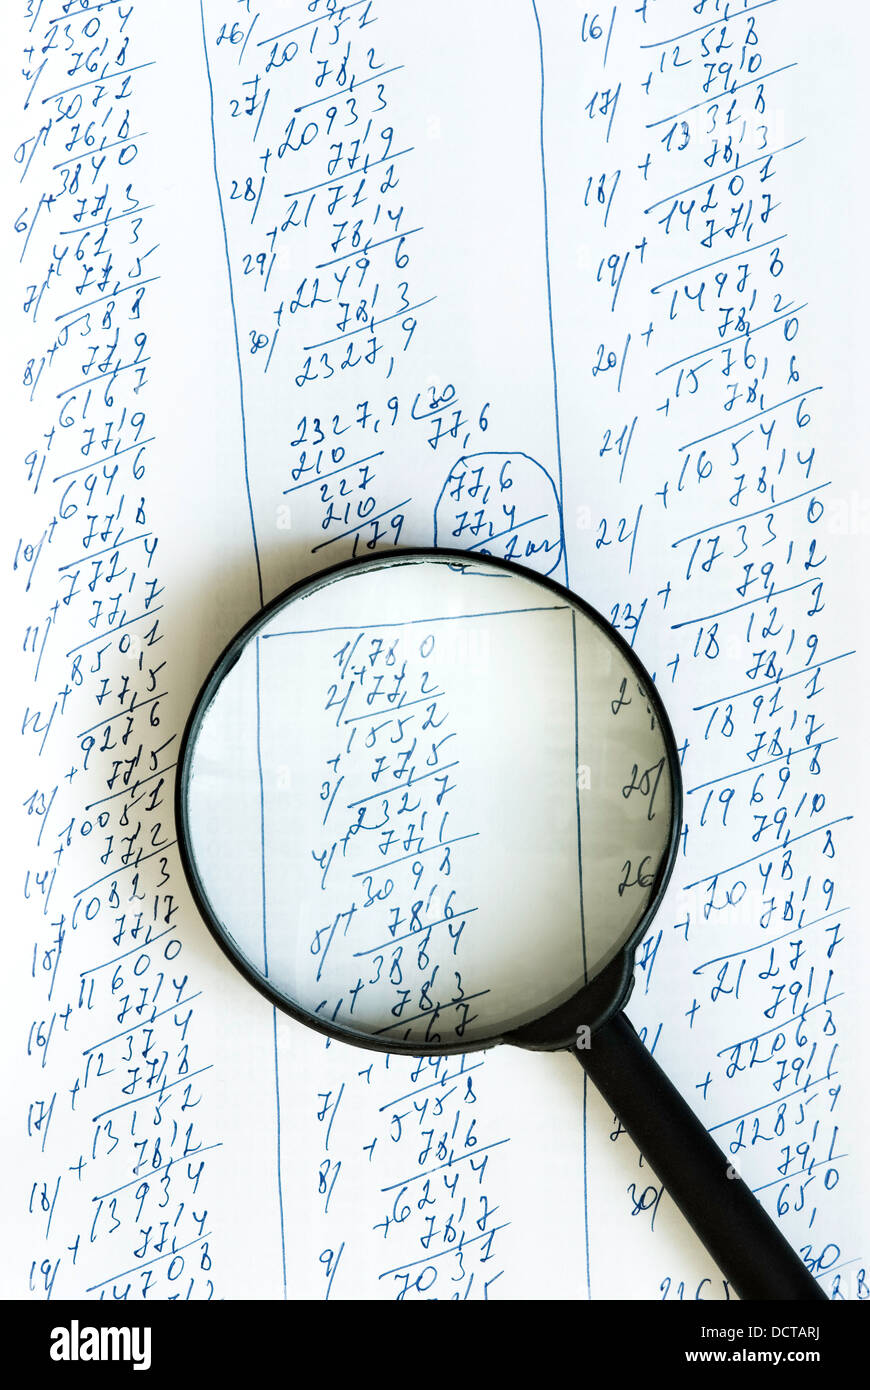 +2304
4/ 76,8
3072
5/+ 76,8
3840
6/+ 77,3
+4613
7/ 77,5
+5388
8/ 77,9
+6167
9/ 77,9
+6946
10/ 77,8
+7724
11/ 77,7
+8501
12/ 77,5
+9276
13/ 77,5
+10051
14/ 77,2
+10823
15/ 77,7
+11600
16/ 77,4
+12374
17/ 77,8
+13152
18/ 78,2
+13934
19/ 77,4
14708
26/
+20151
27/ 78,2
+20933
28/ 77,9
+21712
29/ 78,4
+22496
30/ 78,3
2327,9
2327,9 (30
210 77,6
227
210
179
77,6
77,4
1/ 78,0
2/ +77,2
+1552
3/ 77,5
+2327
4/ 77,1
+3098
5/ 78,6
+3884
78,3
7/ 79,1
+5458
8/ 78,6
+6244
9/ 78,7
7031
16/
+12528
17/ 79,0
+1331,8
18/ 78,3
+14201
19/ 77,7
+14978
20/ 78,2
+1576,0
21/ 78,6
+16546
22/ 78,4
+17330
23/ 79,2
+1812,2
78,9
+1891,1
25/ 78,7
+19698
26 79,0
+2048 8
78,9
+21277
79,1
+2206,8
79,1
22859
30/ 79,1
65,0
30
alamy
Image ID: DCTARJ
www.alamy.com